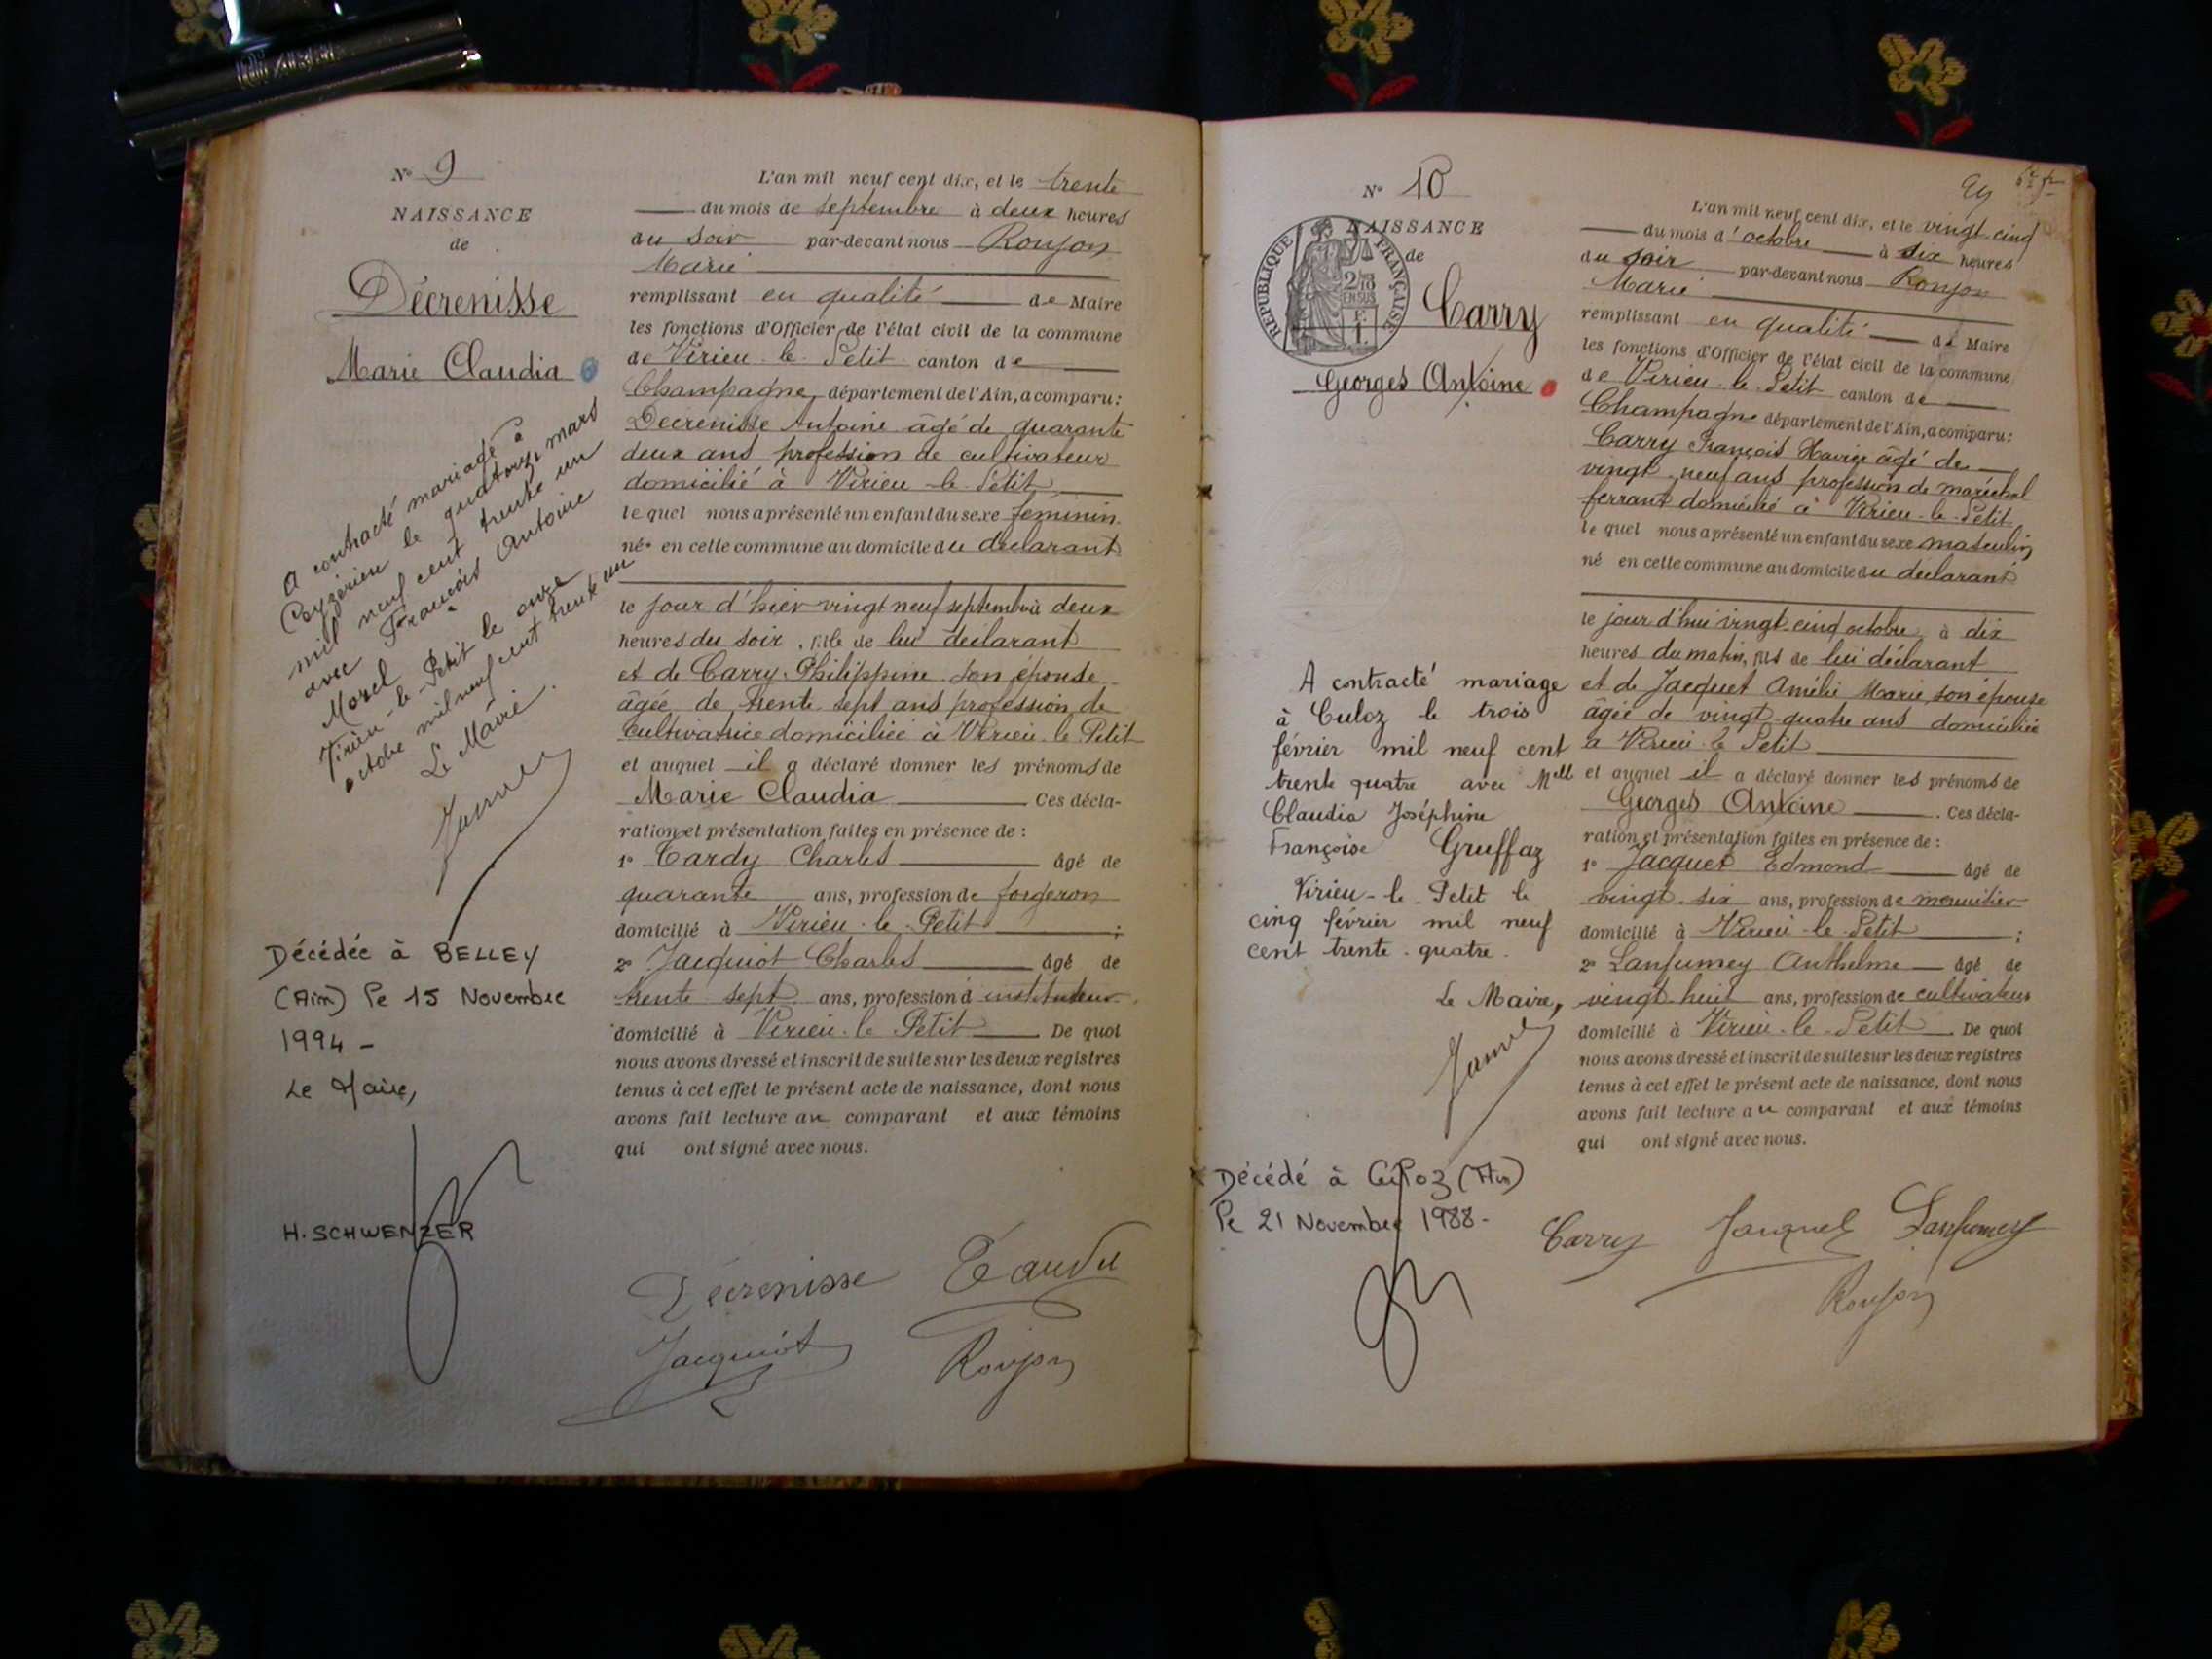 N° 9
NAISSANCE
de
Décrenisse
Marie Claudia
A contracté mariage à
Ceyzérieu le quatorze mars
mil neuf cent trente un
avec François Antoine
Morel
Virieu-le-Petit le onze
octobre mil neuf cent trente un
Le Maire.
Décédée à BELLEY
(Ain) le 15 Novembre
1994 -
Le Maire,
H. SCHWENZER
L'an mil neuf cent dix, et le trente
du mois de septembre à deux heures
du soir par-devant nous Roujon
Marie
remplissant en qualité de Maire
les fonctions d'Officier de l'état civil de la commune
de Virieu-le-Petit canton de
Champagne, département de l'Ain, a comparu:
Décrenisse Antoine âgé de quarante
deux ans profession de cultivateur
domicilié à Virieu-le-Petit
le quel nous a présenté un enfant du sexe féminin
née en cette commune au domicile du déclarant
le jour d'hier vingt neuf septembre à deux
heures du soir, fille de lui déclarant
et de Carry Philippine son épouse
âgée de trente sept ans profession de
cultivatrice domiciliée à Virieu le Petit
et auquel il a déclaré donner les prénoms de
Marie Claudia Ces décla-
ration et présentation faites en présence de :
1° Tardy Charles âgé de
quarante ans, profession de forgeron
domicilié à Virieu-le-Petit ;
2° Jacquiot Charles âgé de
trente sept ans, profession d'instituteur
domicilié à Virieu-le-Petit De quoi
nous avons dressé et inscrit de suite sur les deux registres
tenus à cet effet le présent acte de naissance, dont nous
avons fait lecture au comparant et aux témoins
qui ont signé avec nous.
Décrenisse Tardy
Jacquiot Roujon
N° 10
NAISSANCE
de
RÉPUBLIQUE FRANÇAISE
2/10
EN SUS
Carry
Georges Antoine
A contracté mariage
à Culoz le trois
février mil neuf cent
trente quatre avec Mell
Claudia Joséphine
Françoise Gruffaz
Virieu-le-Petit le
cinq février mil neuf
cent trente-quatre.
Le Maire,
Décédé à Culoz (Ain)
le 21 Novembre 1988-
L'an mil neuf cent dix, et le vingt-cinq
du mois d'octobre à six heures
du soir par-devant nous Roujon
Marie
remplissant en qualité de Maire
les fonctions d'Officier de l'état civil de la commune
de Virieu-le-Petit canton de
Champagne département de l'Ain, a comparu:
Carry François Xavier âgé de
vingt-neuf ans profession de maréchal
ferrant domicilié à Virieu-le-Petit
le quel nous a présenté un enfant du sexe masculin
né en cette commune au domicile du déclarant
le jour d'hui vingt-cinq octobre à dix
heures du matin, fils de lui déclarant
et de Jacquet Amélie Marie, son épouse
âgée de vingt-quatre ans domiciliée
à Virieu-le-Petit
et auquel il a déclaré donner les prénoms de
Georges Antoine. Ces décla-
ration et présentation faites en présence de :
1° Jacquet Edmond âgé de
vingt-six ans, profession de meunier
domicilié à Virieu-le-Petit ;
2° Lanfumey Anthelme âgé de
vingt-huit ans, profession de cultivateur
domicilié à Virieu-le-Petit De quoi
nous avons dressé et inscrit de suite sur les deux registres
tenus à cet effet le présent acte de naissance, dont nous
avons fait lecture au comparant et aux témoins
qui ont signé avec nous.
Carry Jacquet Lanfumey
Roujon